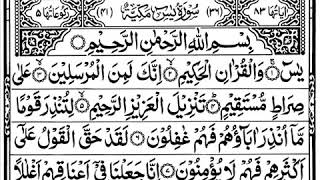 اٰیاتھا ٨٣ (٣٦) سُوْرَةُ یٰسٓ مَكِّيَّةٌ (٤١) رکوعاتھا ٥
بِسْمِ اللّٰهِ الرَّحْمٰنِ الرَّحِيْمِ
يٰسٓ ۝١ وَالْقُرْاٰنِ الْحَكِيْمِ ۝٢ اِنَّكَ لَمِنَ الْمُرْسَلِيْنَ ۝٣ عَلٰى
صِرَاطٍ مُّسْتَقِيْمٍ ۝٤ تَنْزِيْلَ الْعَزِيْزِ الرَّحِيْمِ ۝٥ لِتُنْذِرَ قَوْمًا
مَّاۤ اُنْذِرَ اٰبَآؤُهُمْ فَهُمْ غٰفِلُوْنَ ۝٦ لَقَدْ حَقَّ الْقَوْلُ عَلٰۤى
اَكْثَرِهِمْ فَهُمْ لَا يُؤْمِنُوْنَ ۝٧ اِنَّا جَعَلْنَا فِيْۤ اَعْنَاقِهِمْ اَغْلٰلًا